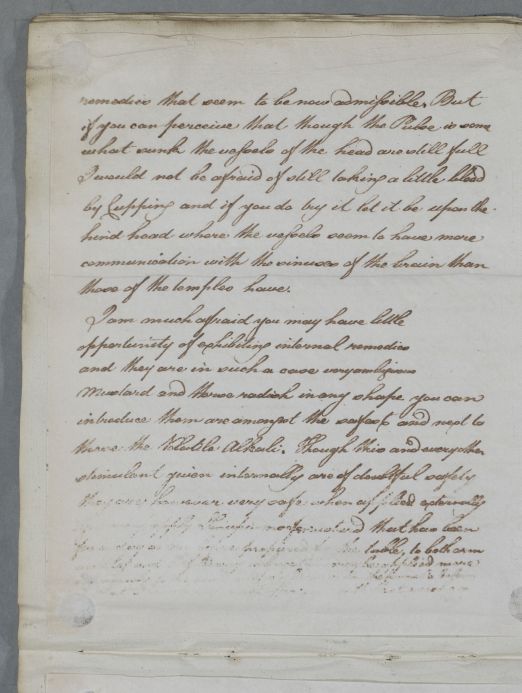 remedies that seem to be now admissible. But
if you can perceive that though the Pulse is some
what sunk the vessels of the head are still full
I would not be afraid of still taking a little blood
by Cupping and if you do try it let it be upon the
hind head where the vessels seem to have more
communication with the sinuses of the brain than
those of the temples have.
I am much afraid you may have little
opportunity of exhibiting internal remedies
and they are in such a case very ambiguous
Mustard and Horse radish in any shape you can
introduce them are amongst the safest and next to
these the Volatile Alkali. Though this and every other
stimulant given internally are of doubtful safety
they are however very safe when applied externally
that have been
the table, to both arms
applied more